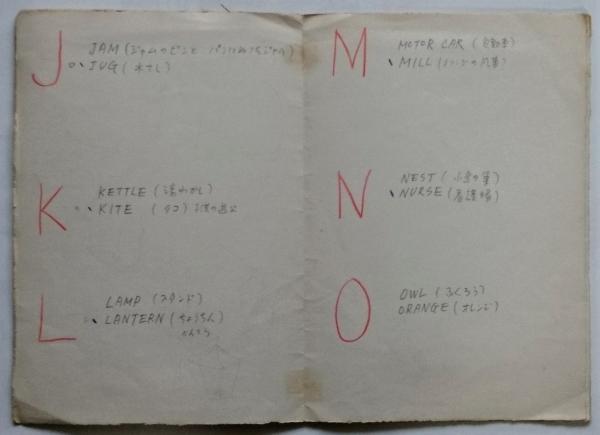 J
JAM (ジャムのビンと パンにぬったジャム)
JUG (水さし)
K
KETTLE (湯わかし)
KITE (タコ) 子供の遊び
L
LAMP (スタンド)
LANTERN (ちょうちん)
M
MOTOR CAR (自動車)
MILL (オランダの風車)
N
NEST (小鳥の巣)
NURSE (看護婦)
O
OWL (ふくろう)
ORANGE (オレンジ)